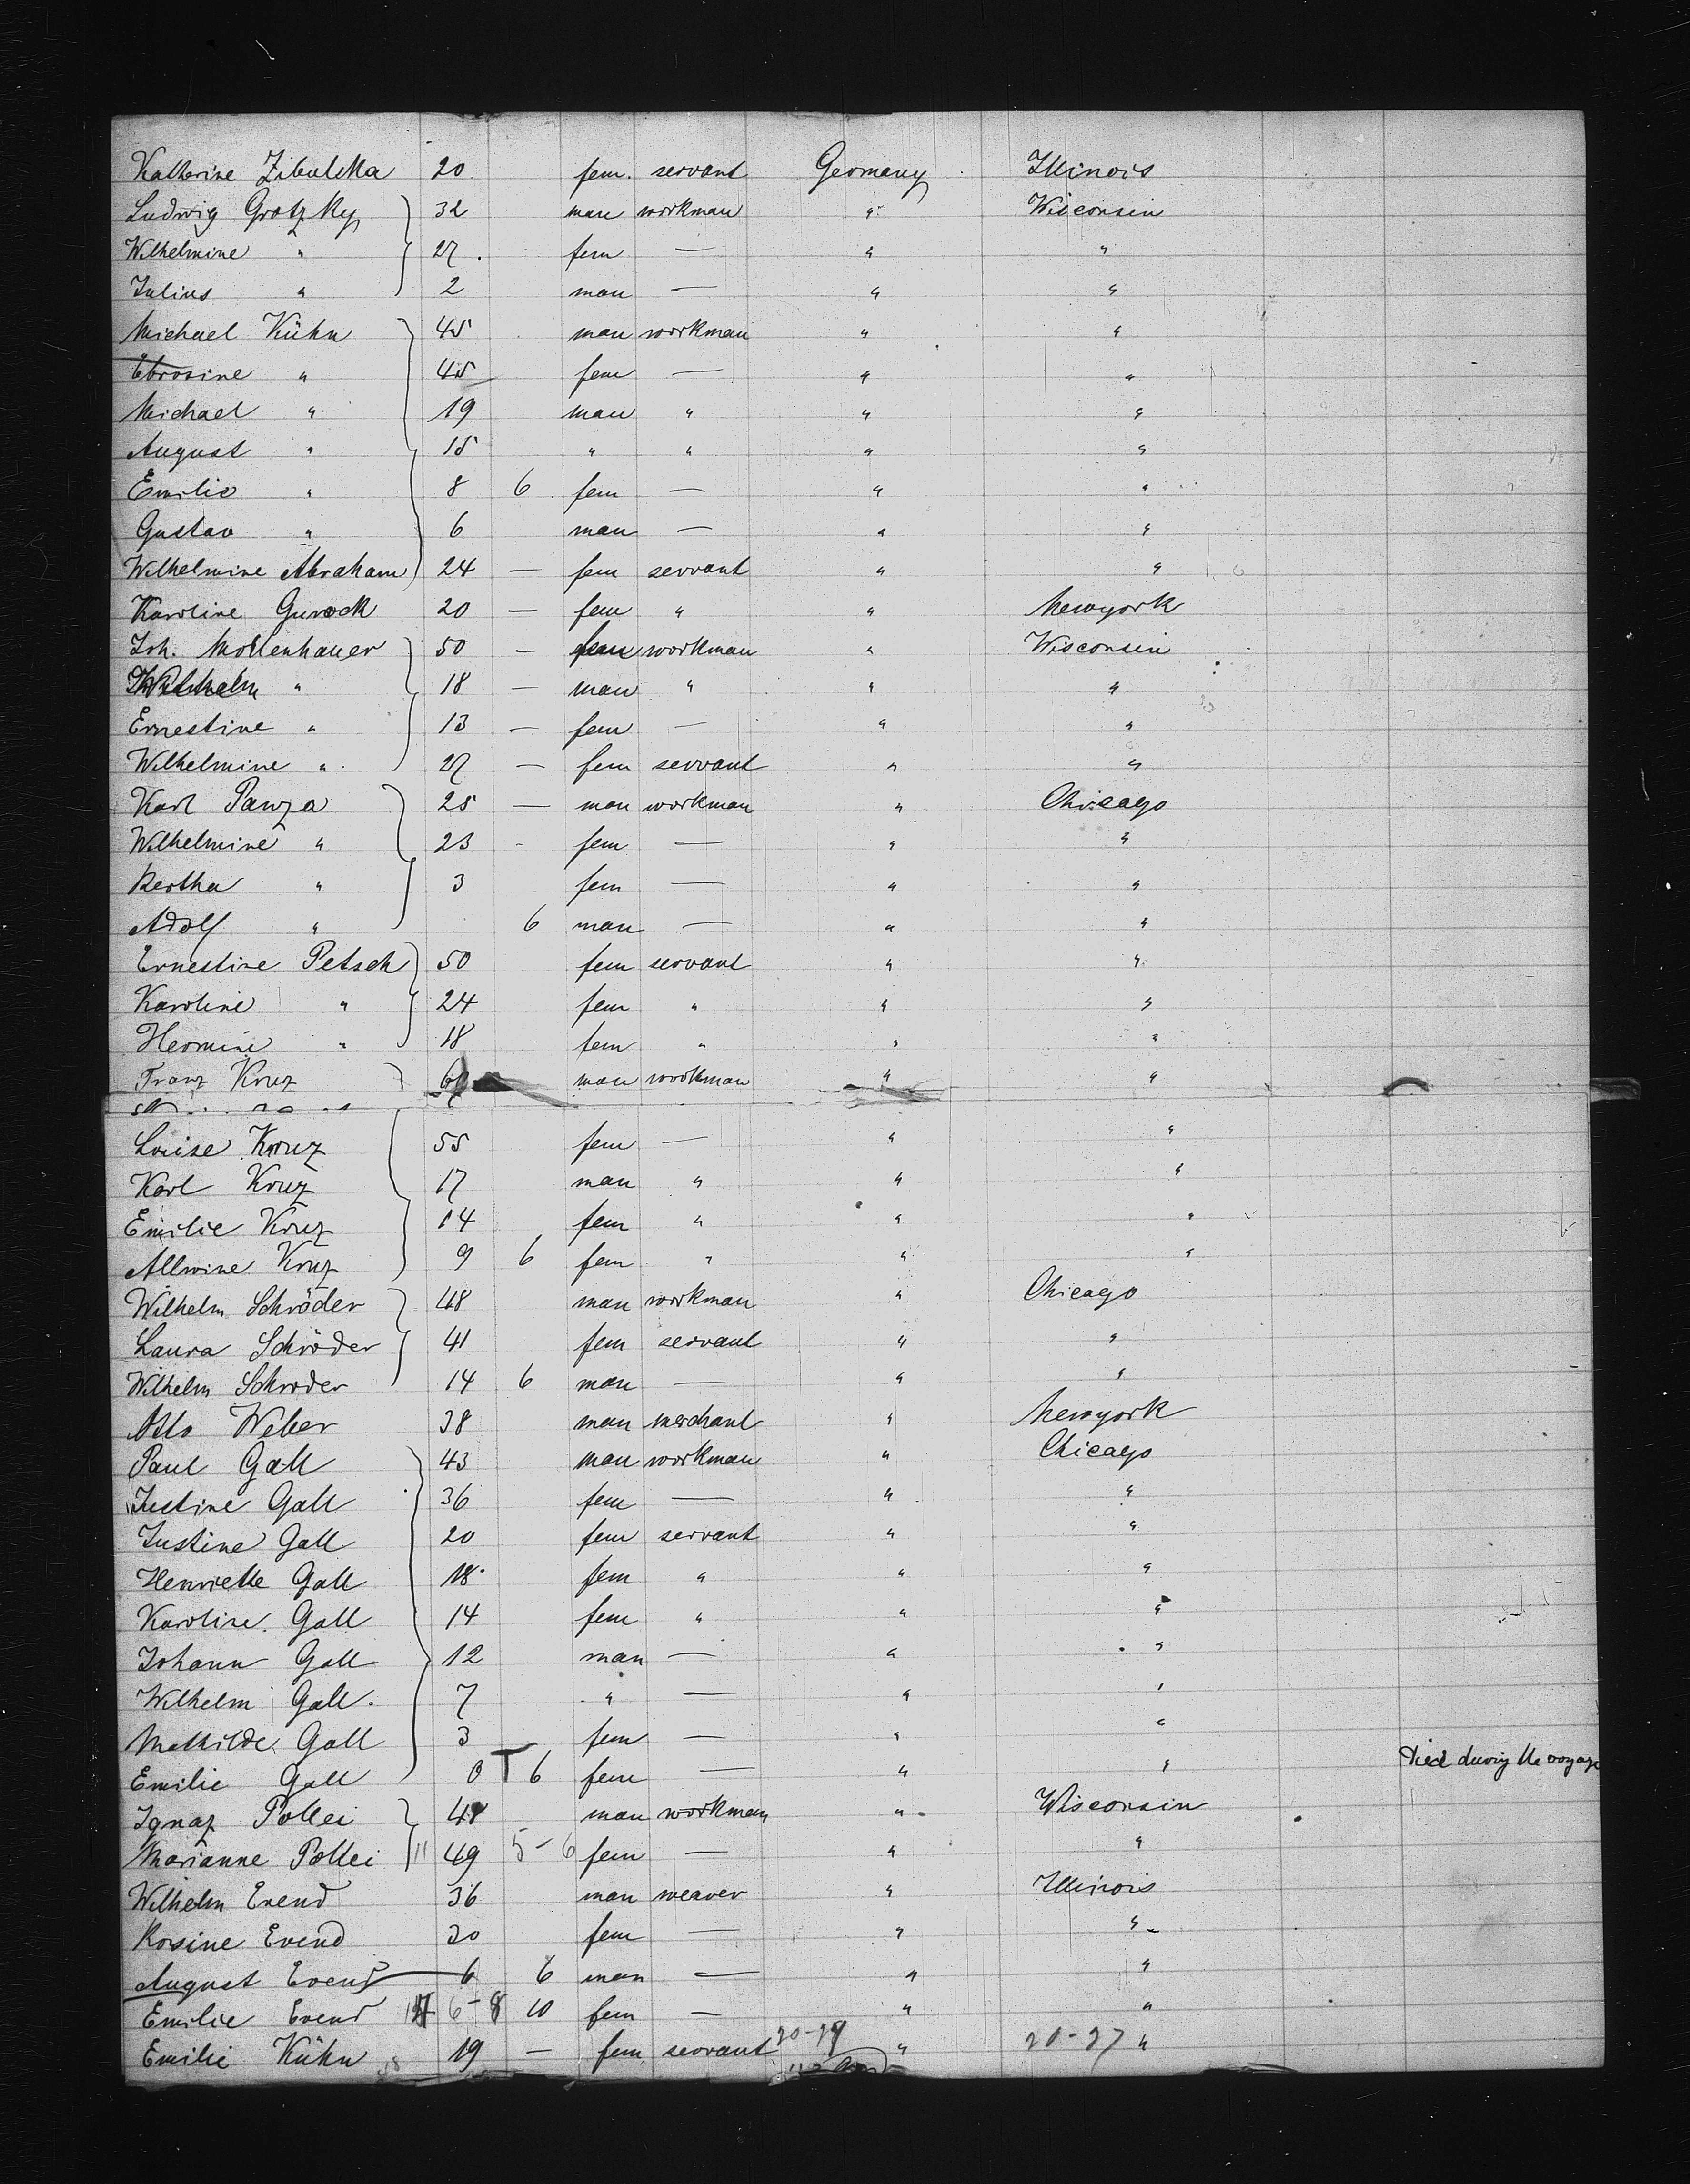 Katherine Zibulka 20 fem. servant Germany Illinois
Ludwig Grotzky 32 man workman " Wisconsin
Wilhelmine " 27. fem — " "
Julius " 2 man — " "
Michael Kühn 45 man workman " "
Ebrosine " 45 fem — " "
Michael " 19 man " " "
August " 15 " " " "
Emilie " 8 6 fem — " "
Gustav " 6 man — " "
Wilhelmine Abraham 24 — fem servant " "
Karoline Gurock 20 — fem " " Newyork
Joh. Mollenhauer 50 — workman " Wisconsin
Wilhelm " 18 — man " " "
Ernestine " 13 — fem — " "
Wilhelmine " 27 — fem servant " "
Karl Panza 25 — man workman " Chicago
Wilhelmine " 23 - fem — " "
Bertha " 3 fem — " "
Adolf " 6 man — " "
Ernestine Petsch 50 fem servant " "
Karoline " 24 fem " " "
Hermine " 18 fem " " "
Franz Kruz man workman " "
Louise Kruz 55 fem — " "
Karl Kruz 17 man " " "
Emilie Kruz 14 fem " " "
Allwine Kruz 9 6 fem " " "
Wilhelm Schröder 48 man workman " Chicago
Laura Schröder 41 fem servant " "
Wilhelm Schroder 14 6 man — " "
Otto Weber 38 man merchant " Newyork
Paul Gall 43 man workman " Chicago
Justine Gall 36 fem — " "
Justine Gall 20 fem servant " "
Henriette Gall 18 fem " " "
Karoline Gall 14 fem " " "
Johann Gall 12 man — " "
Wilhelm Gall. 7 " — " "
Mathilde Gall 3 fem — " "
Emilie Gall 0 T 6 fem — " " Died during the voyage
Ignaz Pollei 48 man workman " Wisconsin
Marianne Pollei 11 49 5-6 fem — " "
Wilhelm Evend 36 man weaver " Illinois
Rosine Evend 30 fem — " "
August Evend 6 6 man — " "
Emilie Evend 6-8 10 fem — " "
Emilie Kühn 19 — fem servant 20-27 " 20-27 "